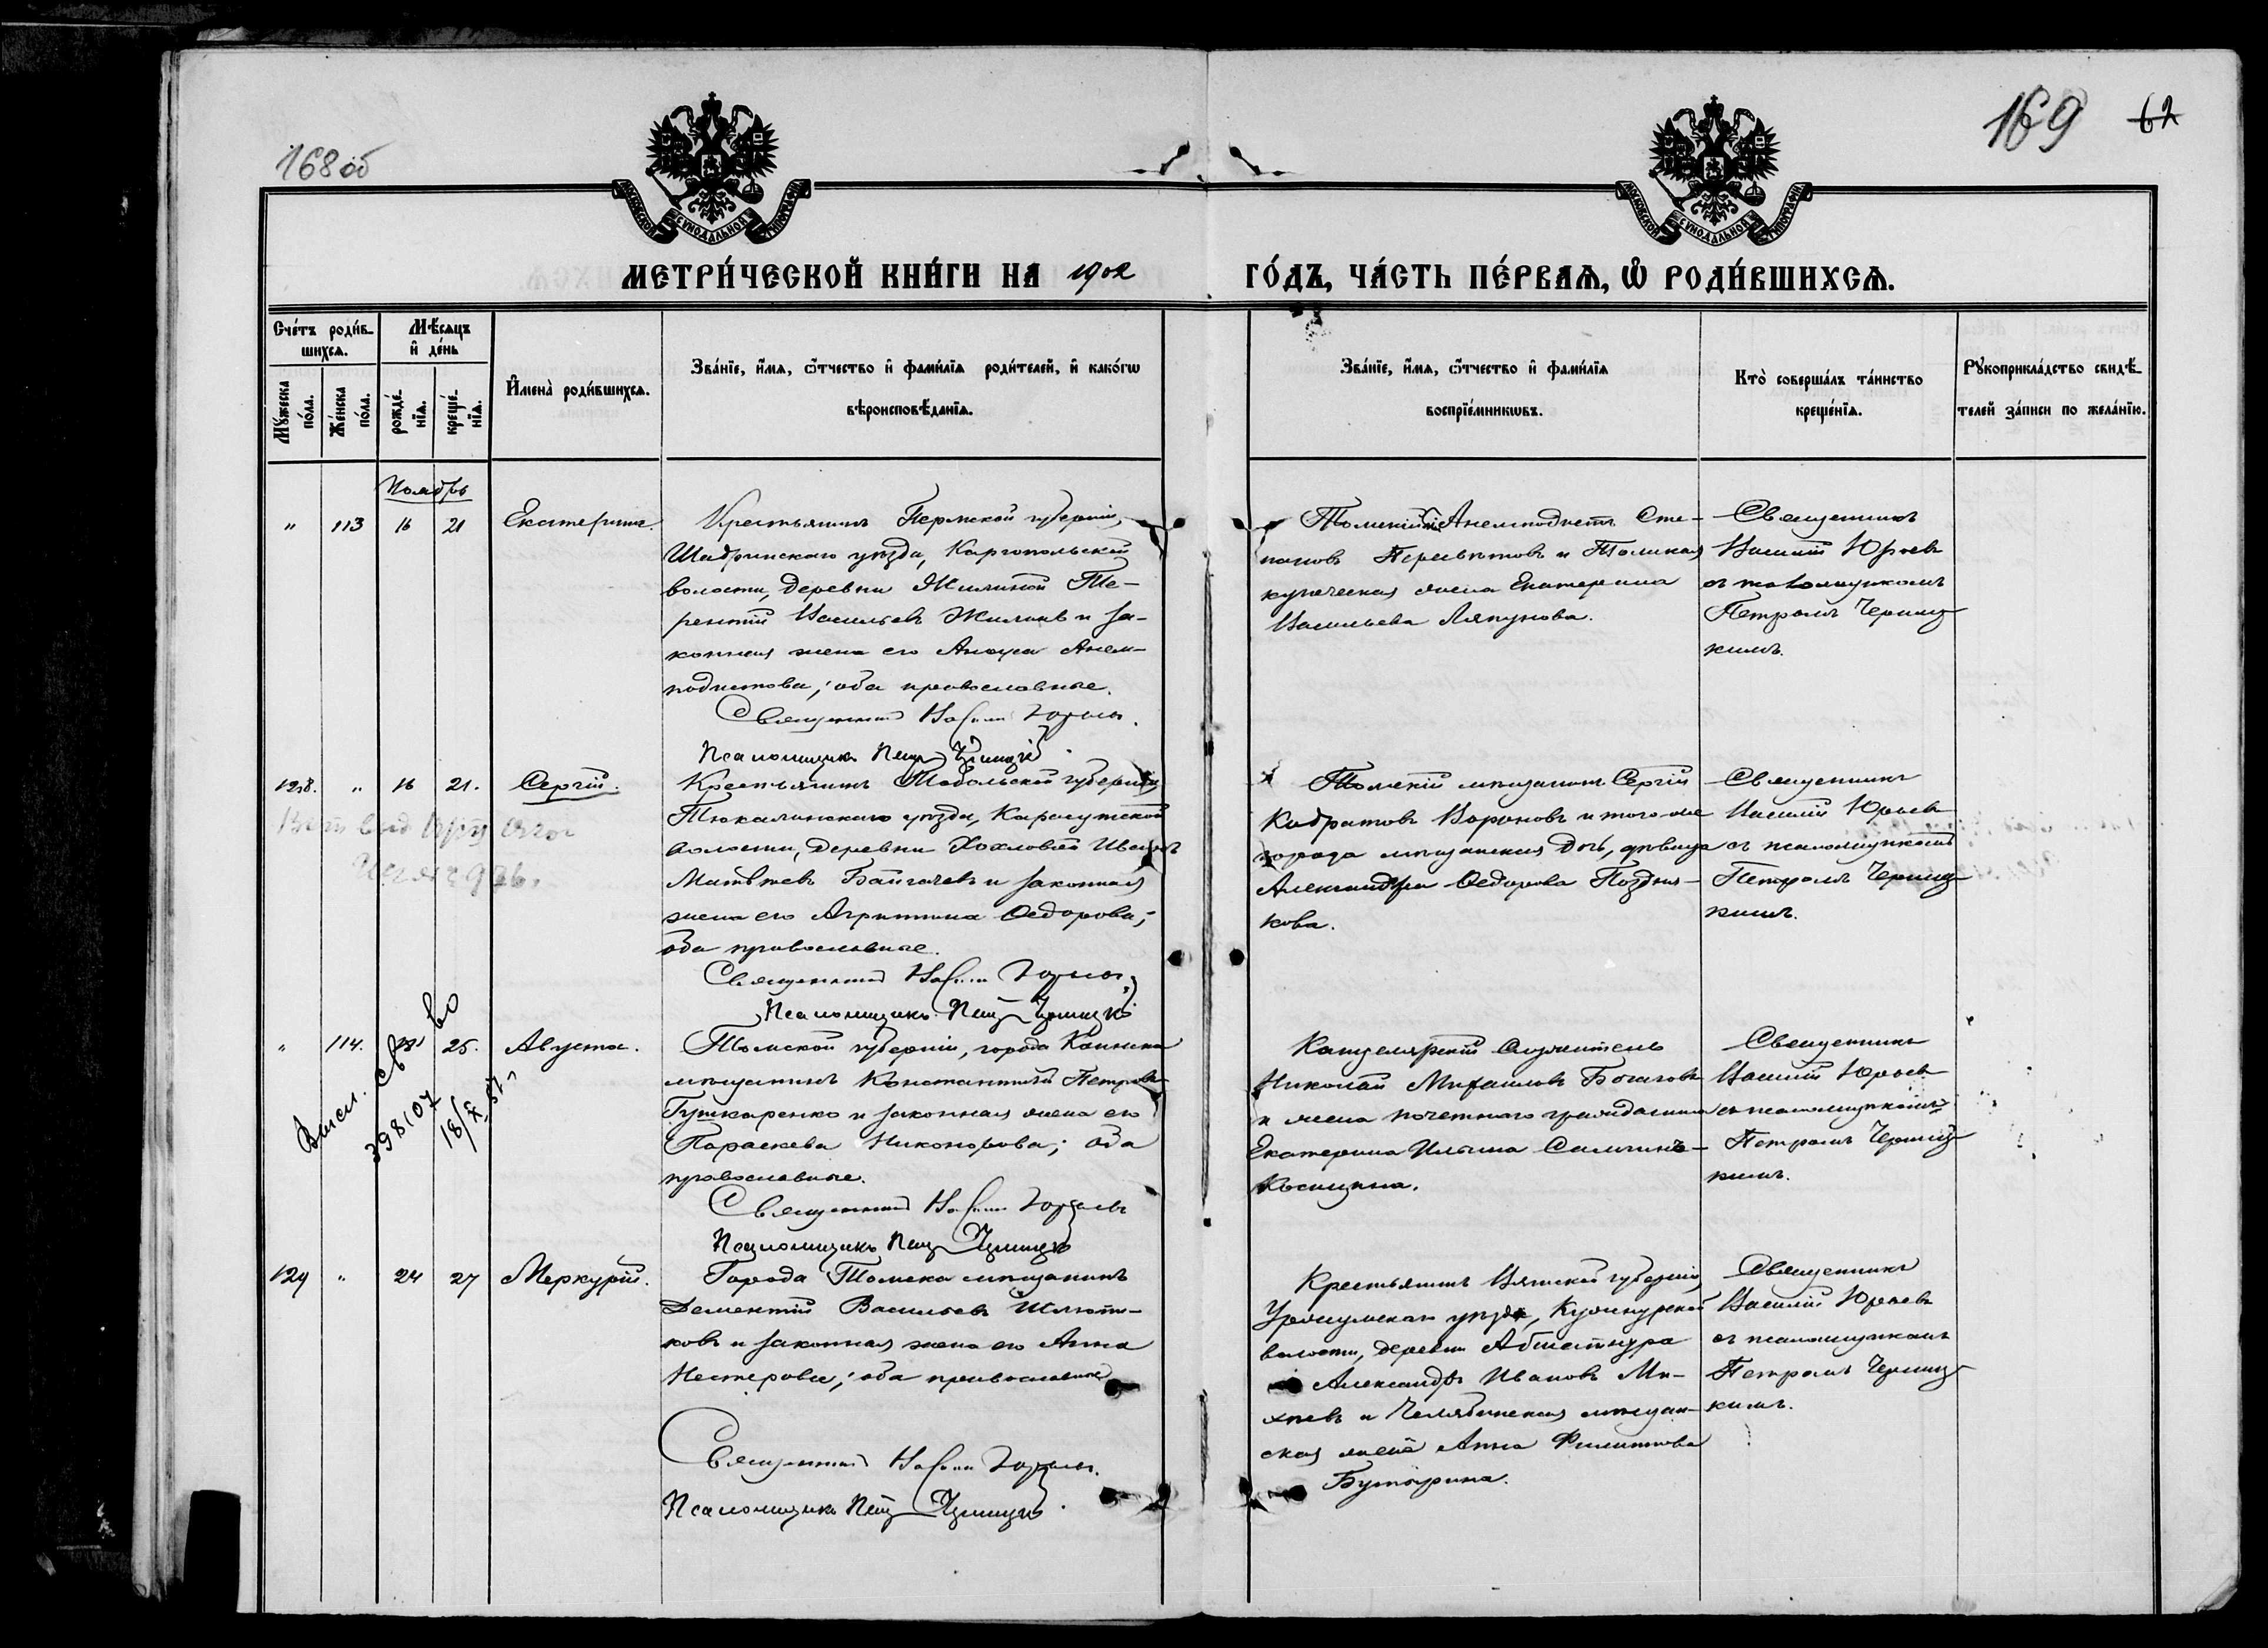 168 об
169 62
МОСКОВСКОЙ СѴНОДАЛЬНОЙ ТИПОГРАФІИ
МОСКОВСКОЙ СѴНОДАЛЬНОЙ ТИПОГРАФІИ
МЕТРИ́ЧЕСКОЙ КНИ́ГИ НА 1902 ГО́ДЪ, ЧА́СТЬ ПЕ́РВАѦ, Ѡ РОДИ́ВШИХСѦ.
Сче́тъ роди́в-
шихсѧ.
Мѣ́сѧцъ
и҆ де́нь
Мꙋ́жеска
по́ла.
Же́нска
по́ла.
рожде́-
нїѧ.
креще́-
нїѧ.
И҆мена̀ роди́вшихсѧ.
Зва́нїе, и҆́мѧ, ѻ҆́тчество и҆ фами́лїѧ роди́телей, и҆ како́гѡ
вѣроисповѣ́данїѧ.
Зва́нїе, и҆́мѧ, ѻ҆́тчество и҆ фами́лїѧ
воспрїе́мникѡвъ.
Кто̀ соверша́лъ та́инство
креще́нїѧ.
Рꙋкоприкла́дство свидѣ́-
телей за́писи по жела́нїю.
Ноябрь
" 113 16 21 Екатерина.
Крестьянинъ Пермской губерніи,
Шадринскаго уѣзда, Каргопольской
волости, деревни Жилиной Те-
рентій Васильевъ Жилинъ и за-
конная жена его Анем-
подистова; оба православные.
Священникъ Василій Юрьевъ.
Псаломщикъ Петръ
Томскій Анемподистъ Сте-
пановъ и Томская
купеческая жена Екатерина
Васильева Ляпунова.
Священникъ
Василій Юрьевъ
съ псаломщикомъ
Петромъ
128. " 16 21. Сергій.
Крестьянинъ Тобольской губерніи
Тюкалинскаго уѣзда, Карасукской
волости, деревни Хохловой Иванъ
Матвѣевъ и законная
жена его Агриппина Ѳедорова;
оба православные.
Священникъ Василій Юрьевъ.
Псаломщикъ Петръ
Томскій мѣщанинъ Сергій
Кодратовъ Вороновъ и того-же
города мѣщанская дочь, дѣвица
Александра Ѳедорова Поздня-
кова.
Священникъ
Василій Юрьевъ
съ псаломщикомъ
Петромъ
" 114. 25. Августа.
Высл. св-во
398107
18/X
Томской губерніи, города Каинска
мѣщанинъ Константинъ Петровъ
Гушкаренко и законная жена его
Параскева Никонорова; оба
православные.
Священникъ Василій Юрьевъ
Псаломщикъ Петръ
Канцелярскій служитель
Николай Михаиловъ Богатовъ
и жена почетнаго гражданина
Екатерина Ильина
Священникъ
Василій Юрьевъ
съ псаломщикомъ
Петромъ
129 " 24 27 Меркурій.
Города Томска мѣщанинъ
Дементій Васильевъ
и законная жена его Анна
Нестерова; оба православные
Священникъ Василій Юрьевъ.
Псаломщикъ Петръ
Крестьянинъ Вятской губерніи,
Уржумскаго уѣзда,
волости, деревни
Александръ Ивановъ Ми-
хѣевъ и Челябинская мѣщан-
ская жена Анна Филиппова
Бутырина.
Священникъ
Василій Юрьевъ
съ псаломщикомъ
Петромъ